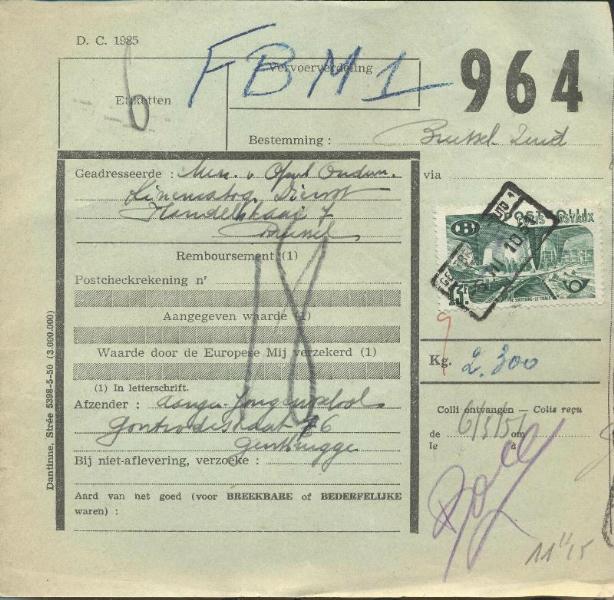 D. C. 1985
FBM1
Vervoerverdeling
964
6
Etiketten
Bestemming : Brussel Zuid
Geadresseerde : Min. v Openb Onderw.
via
Cinematogr. Dienst
Handelskaai 7
Brussel
Remboursement (1)
Postcheckrekening nr
Aangegeven waarde (1)
Waarde door de Europese Mij verzekerd (1)
18
(1) In letterschrift.
Kg. 2.300
9
Afzender :
Colli ontvangen — Colis reçu
de 6/5/51 om
le à
Gentbrugge
Bij niet-aflevering, verzoeke :
Aard van het goed (voor BREEKBARE of BEDERFELIJKE
waren) :
Dantinne, Strée 5398-5-50 (3.000.000)
B
11 15